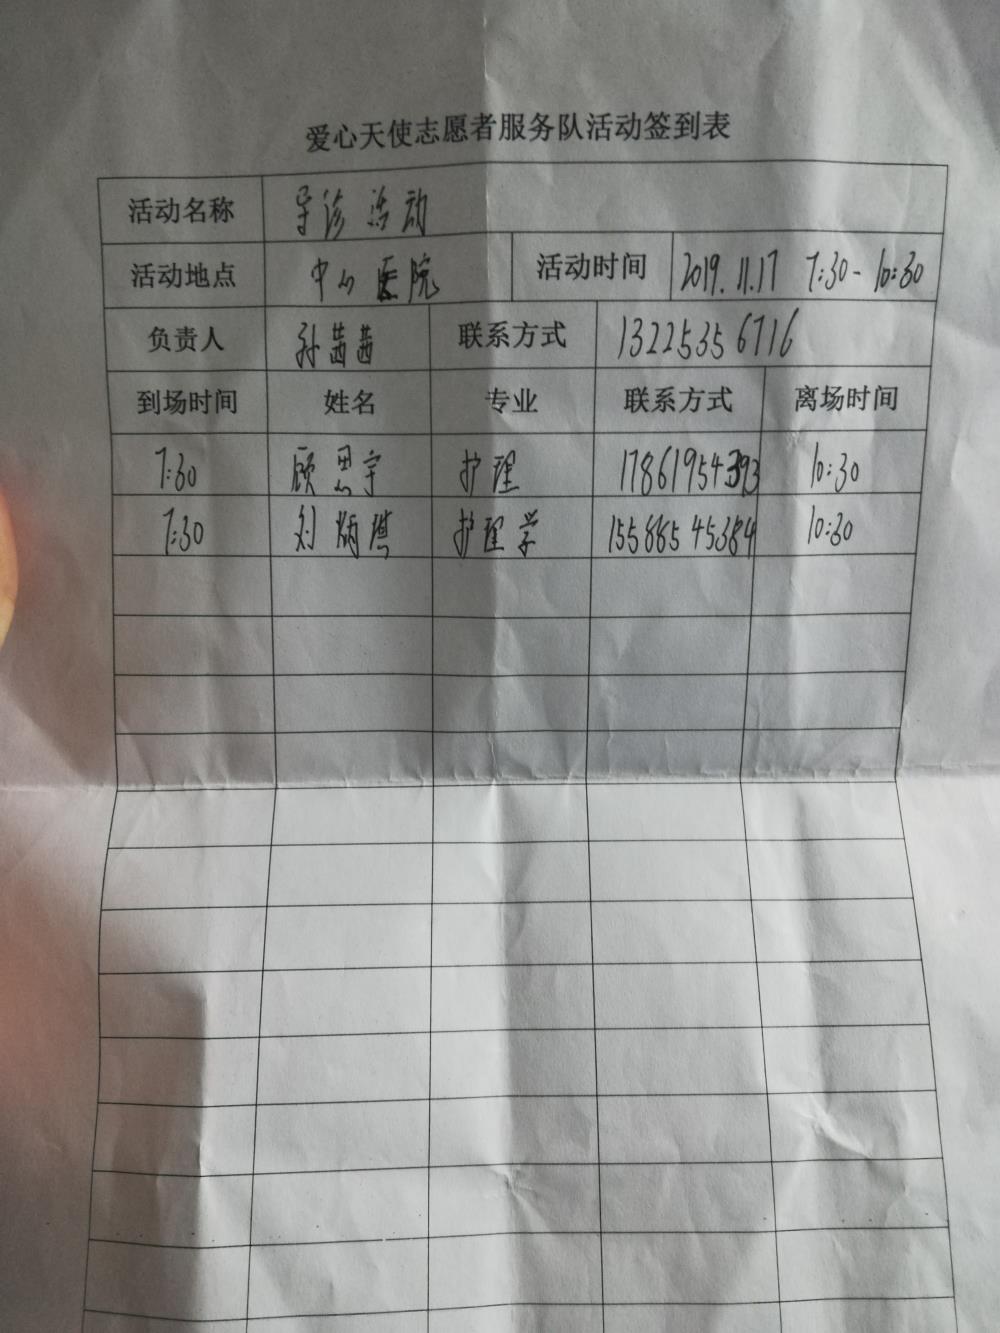 爱心天使志愿者服务队活动签到表
活动名称 导诊活动
活动地点 中心医院 活动时间 2019.11.17 7:30-10:30
负责人 孙茜茜 联系方式 13225356716
到场时间 姓名 专业 联系方式 离场时间
7:30 顾思宇 护理 17861954393 10:30
7:30 刘炳琪 护理学 15586545384 10:30